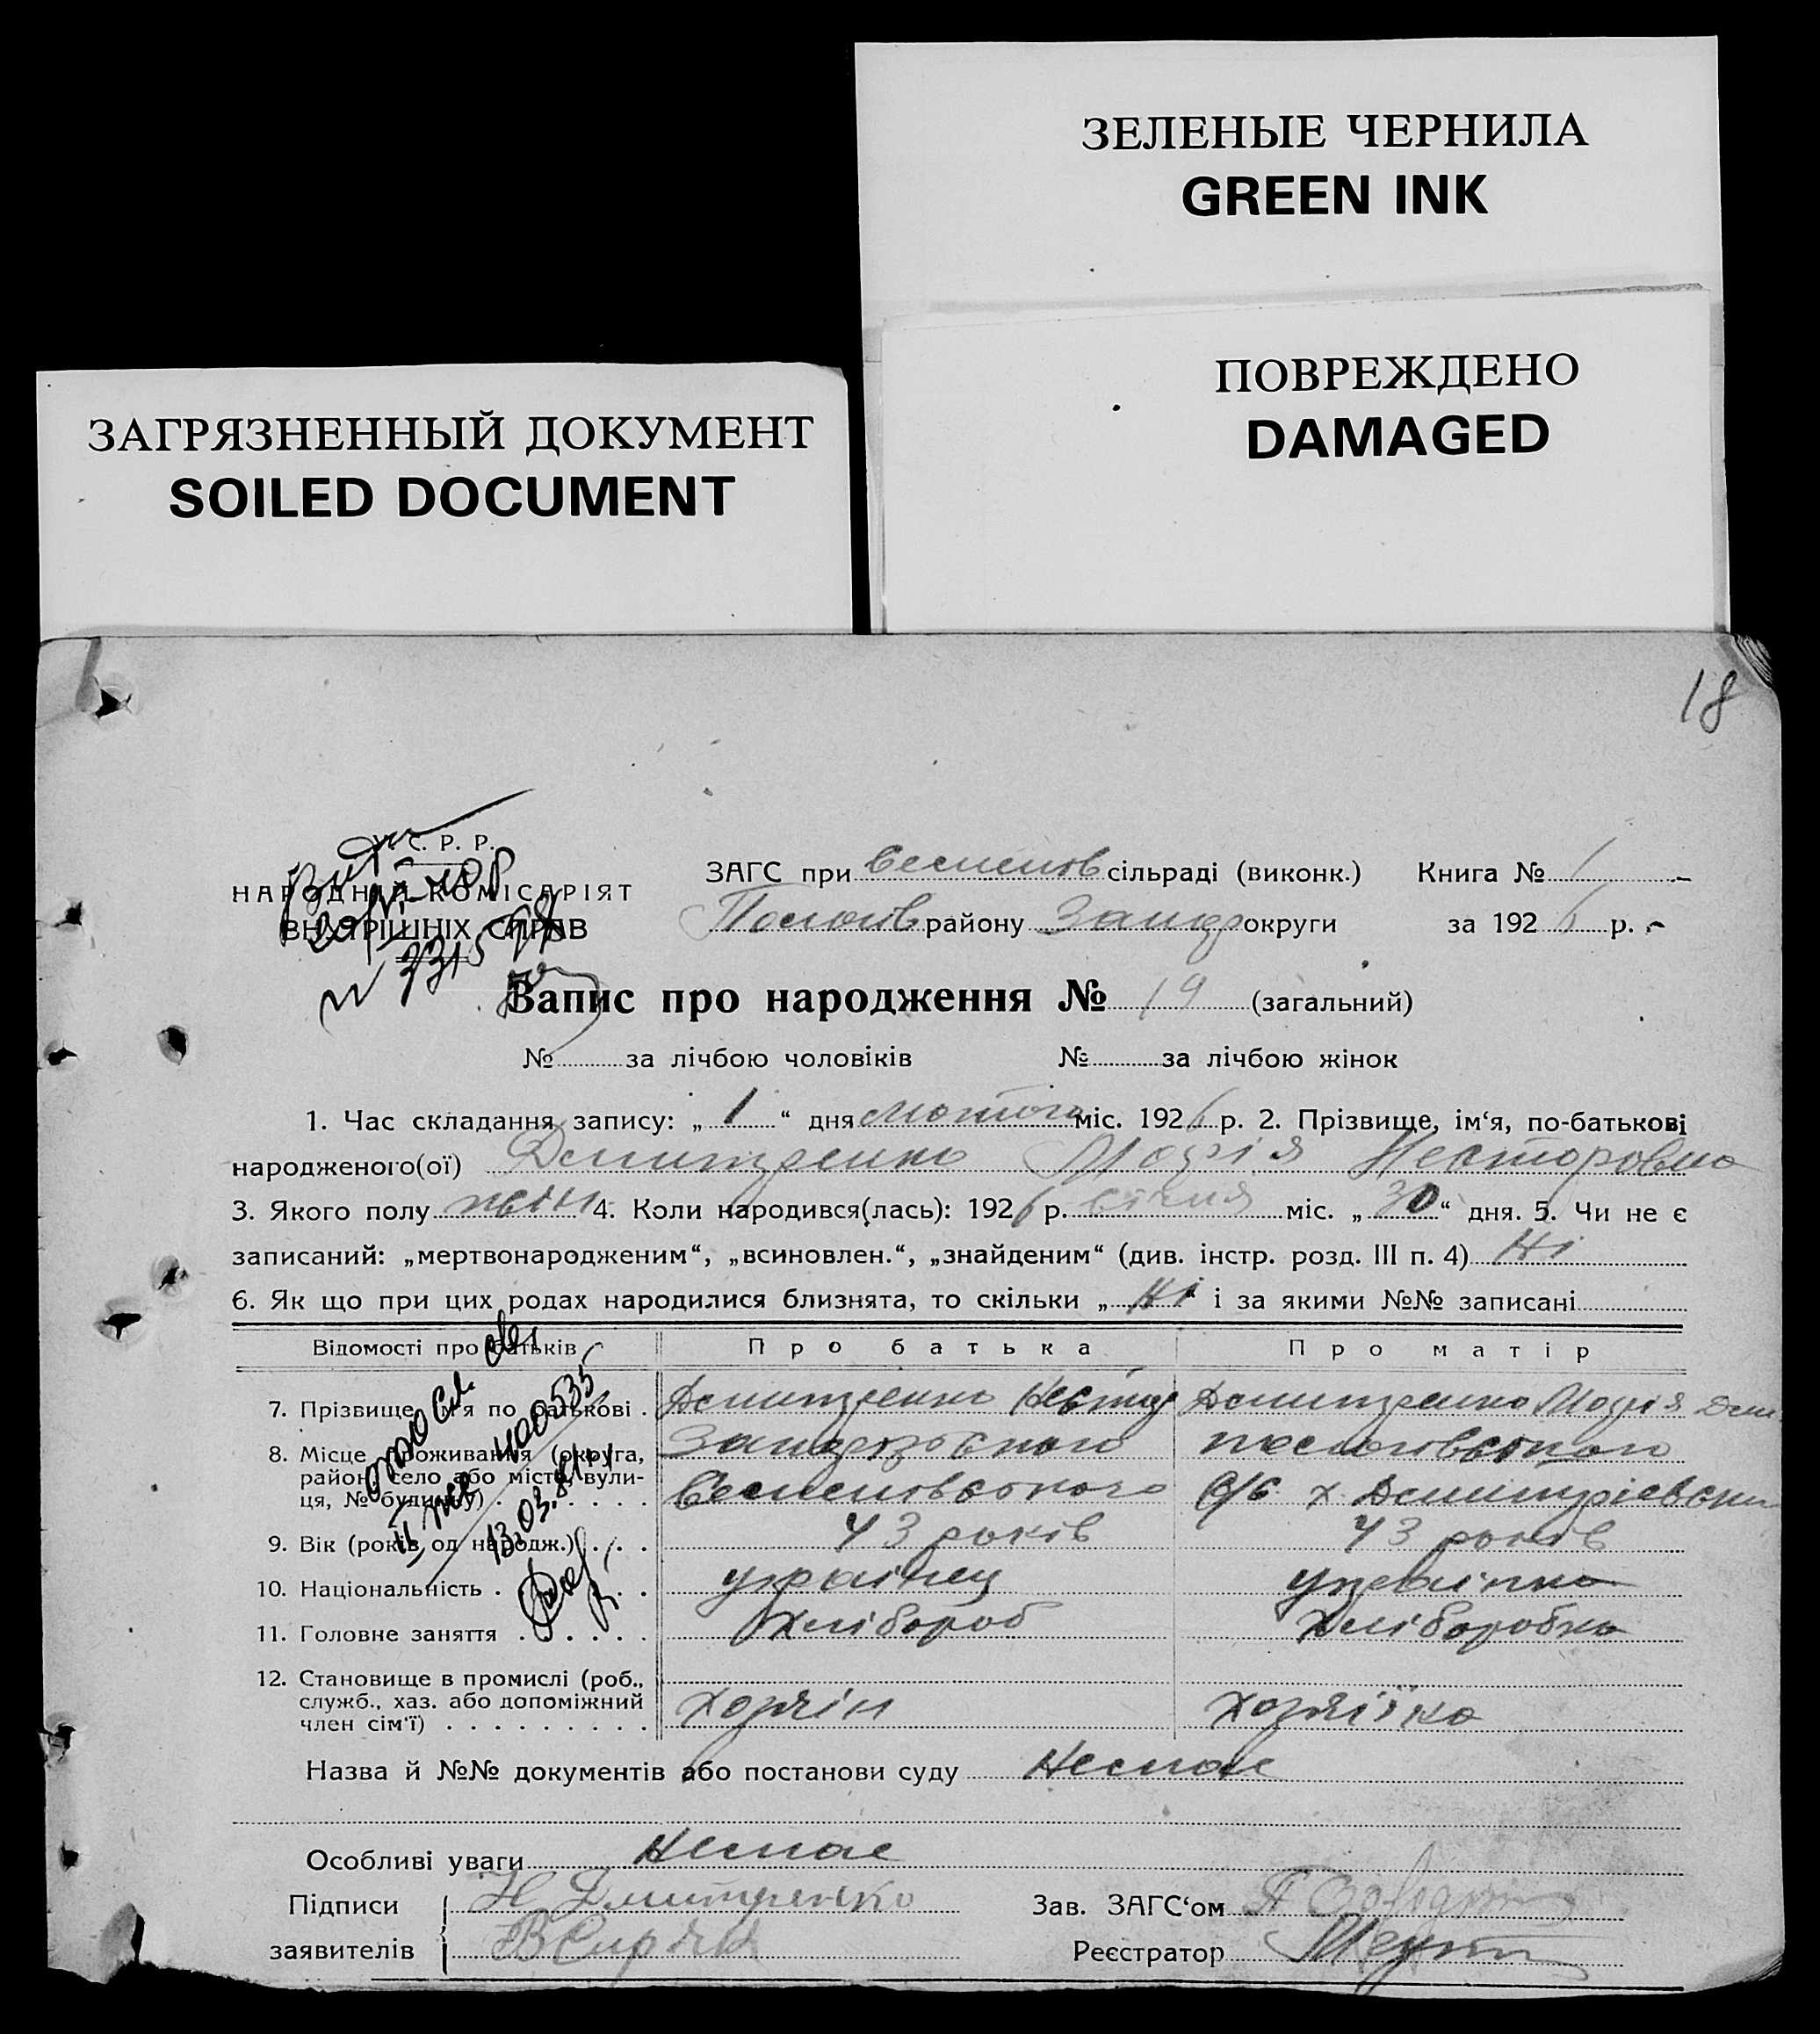 ЗЕЛЕНЫЕ ЧЕРНИЛА
GREEN INK
ПОВРЕЖДЕНО
DAMAGED
ЗАГРЯЗНЕННЫЙ ДОКУМЕНТ
SOILED DOCUMENT
18
С. Р. Р.
НАРОДНИЙ КОМІСАРІЯТ
ВНУТРІШНІХ СПРАВ
ЗАГС при сільраді (виконк.) Книга № 1
району округи за 1926 р.
Запис про народження № 19 (загальний)
№ за лічбою чоловіків № за лічбою жінок
1. Час складання запису: „ 1 “ дня лютого міс. 1926 р. 2. Прізвище, ім‘я, по-батькові
народженого(ої) Демитренко Марія Несторовна
3. Якого полу жін. 4. Коли народився(лась): 1926 р. січня міс. „ 30 “ дня. 5. Чи не є
записаний: „мертвонародженим“, „всиновлен.“, „знайденим“ (див. інстр. розд. III п. 4) Ні
6. Як що при цих родах народилися близнята, то скільки „ Ні “ і за якими №№ записані
Відомості про батьків Про батька Про матір
7. Прізвище, ім‘я по батькові . Демитренко Нестор Демитренко Марія
8. Місце проживання (округа,
район, село або місто, вули-
ця, № будинку) с/б х.
400535
13.03.81
9. Вік (років од народж.) . . . 43 років 43 років
10. Національність . . . . українец українка
11. Головне заняття . . . . . . хлібороб хліборобка
12. Становище в промислі (роб.,
служб., хаз. або допоміжний
член сім‘ї) . . . . . . . . . хозяїн хозяїка
Назва й №№ документів або постанови суду Немає
Особливі уваги Немає
Підписи Н Дмитренко Зав. ЗАГС‘ом
заявителів Реєстратор